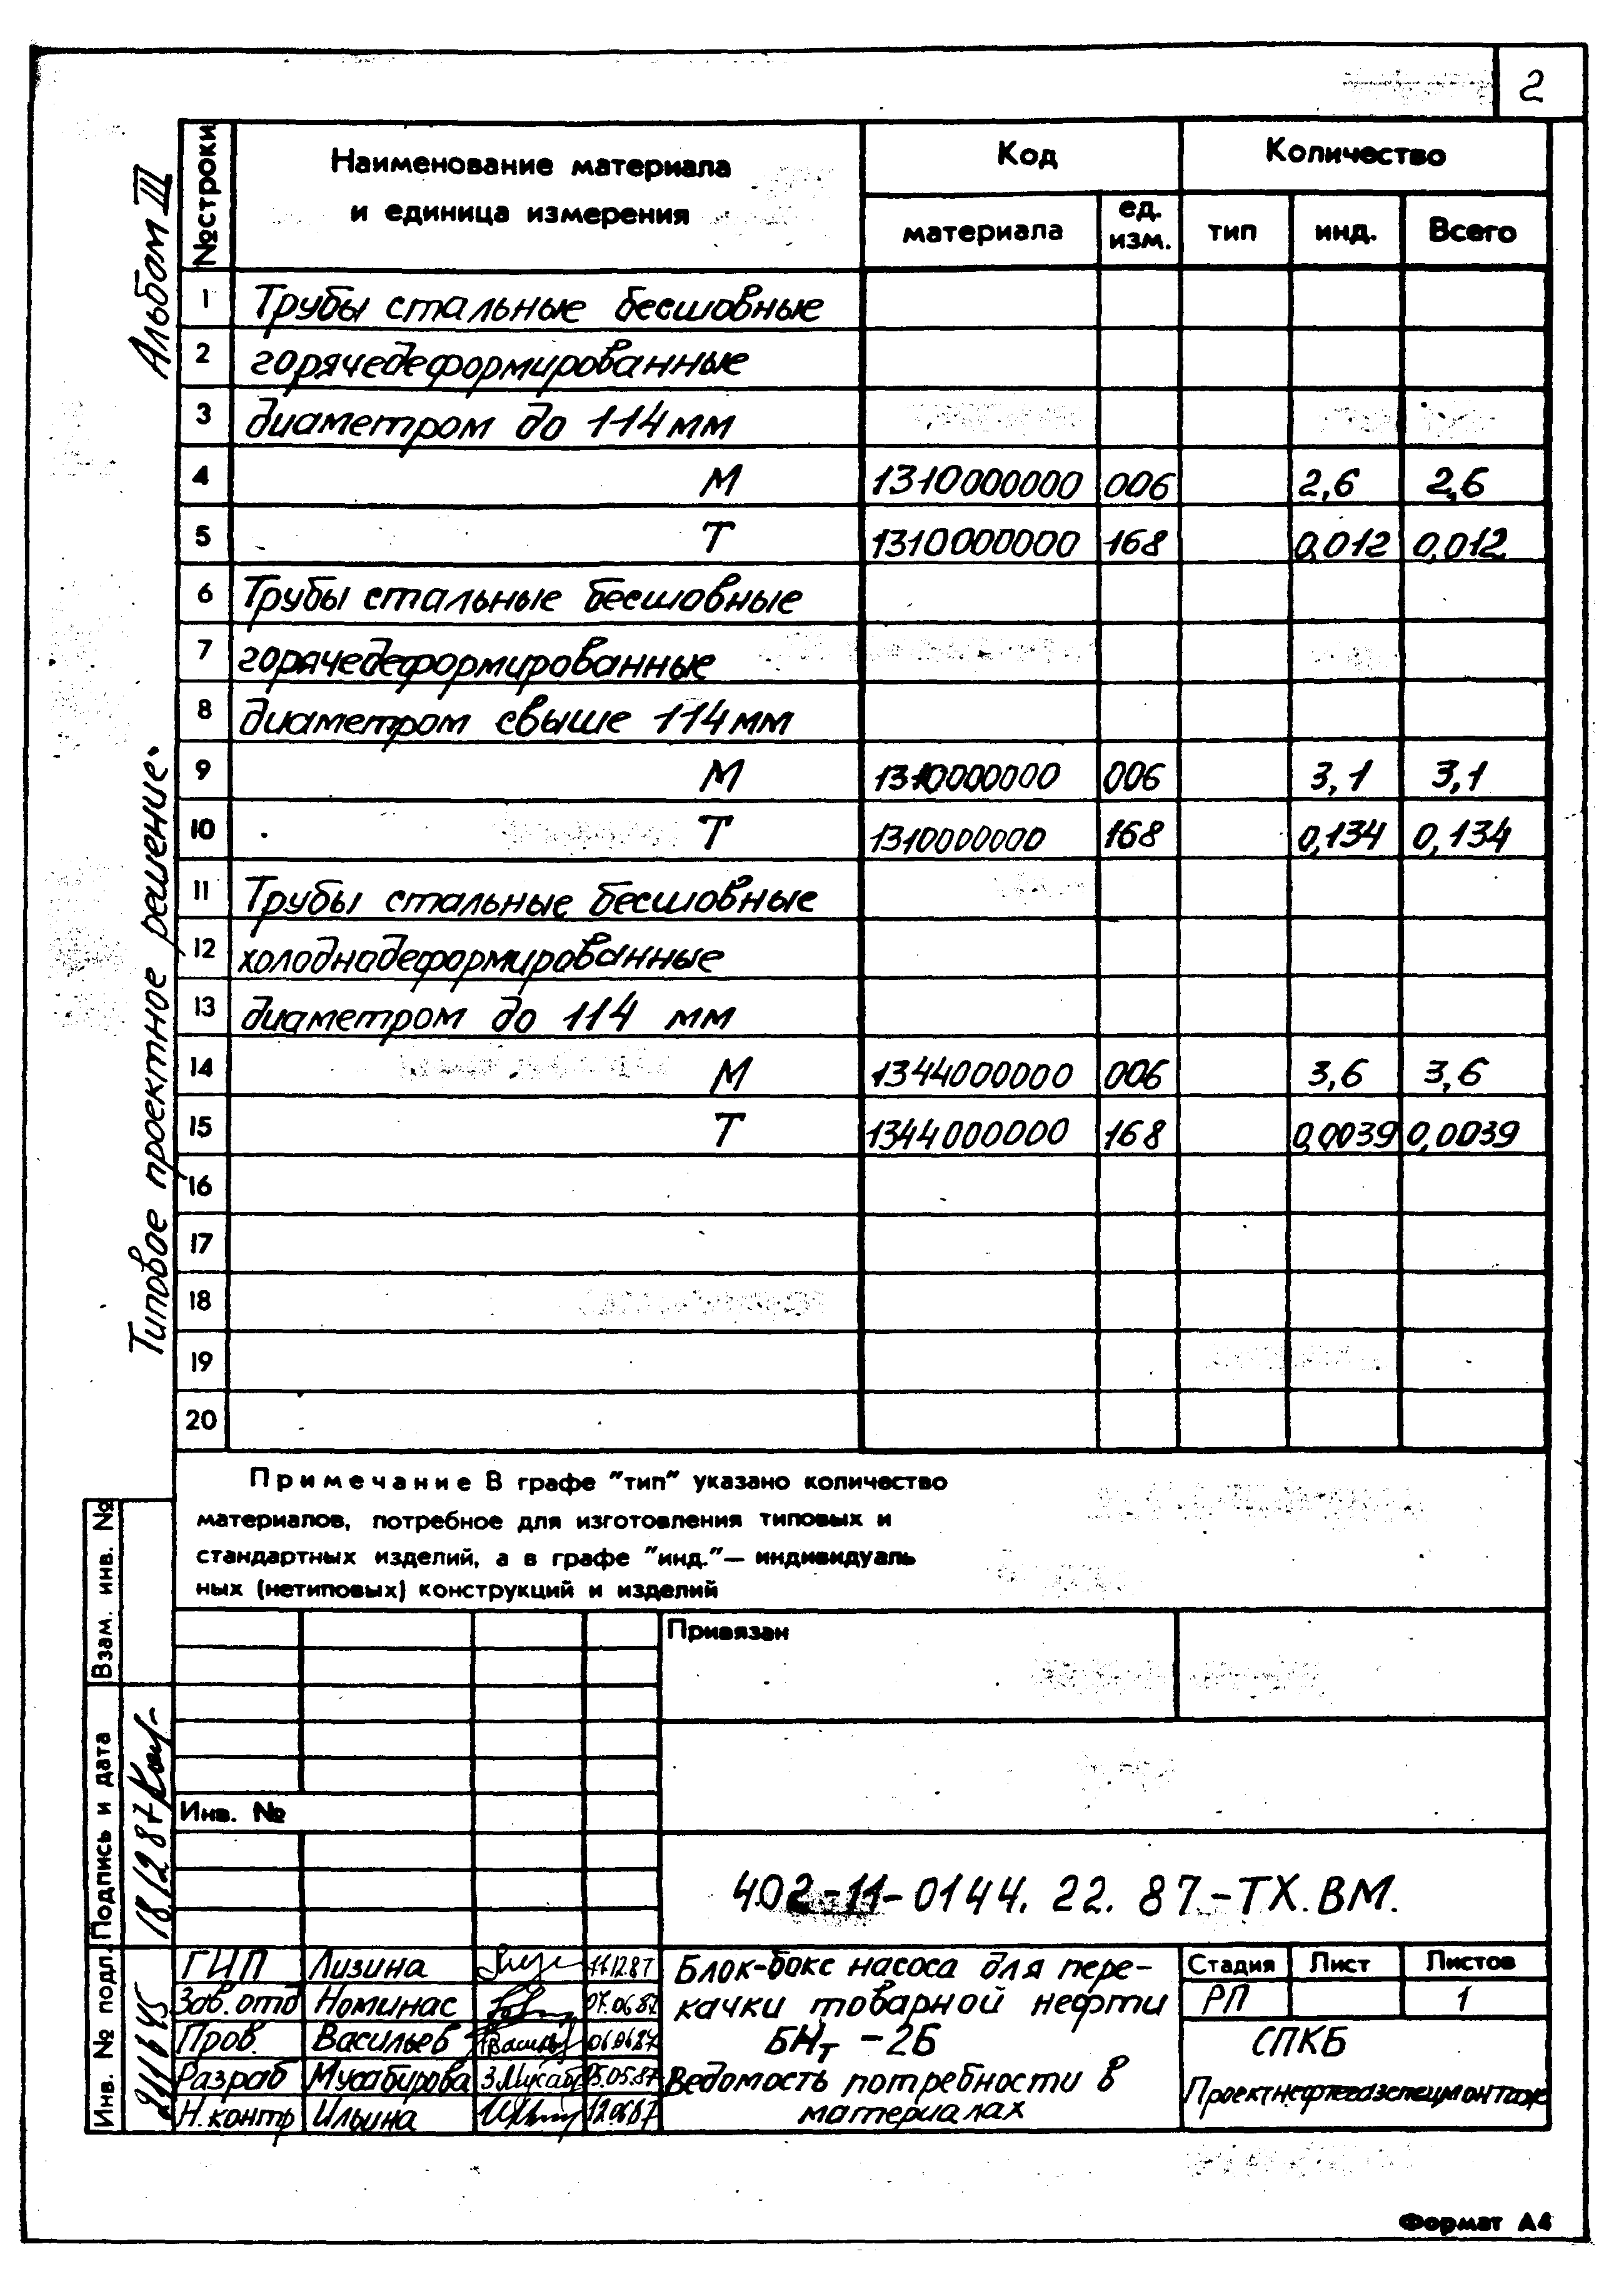 2
Альбом III
Типовое проектное решение.
№ строки
Наименование материала
и единица измерения
Код
Количество
материала
ед. изм.
тип
инд.
Всего
1 Трубы стальные бесшовные
2 горячедеформированные
3 диаметром до 114 мм
4 М 1310000000 006 2,6 2,6
5 Т 1310000000 168 0,012 0,012
6 Трубы стальные бесшовные
7 горячедеформированные
8 диаметром свыше 114 мм
9 М 1310000000 006 3,1 3,1
10 Т 1310000000 168 0,134 0,134
11 Трубы стальные бесшовные
12 холоднодеформированные
13 диаметром до 114 мм
14 М 1344000000 006 3,6 3,6
15 Т 1344000000 168 0,0039 0,0039
16
17
18
19
20
Примечание В графе "тип" указано количество
материалов, потребное для изготовления типовых и
стандартных изделий, а в графе "инд."— индивидуаль
ных (нетиповых) конструкций и изделий
Взам. инв. №
Подпись и дата
18.12.87
Инв. № подл.
Привязан
Инв. №
402-11-0144.22.87.-ТХ.ВМ.
ГИП Лизина 11.12.87
Зав. отд Номинас 07.06.87
Пров. Васильев 06.06.87
Разраб Мусабирова 05.05.87
Н. контр Ильина 12.06.87
Блок-бокс насоса для пере-
качки товарной нефти
БНт -2Б
Ведомость потребности в
материалах
Стадия Лист Листов
РП 1
СПКБ
Проектнефтегазспецмонтаж
Формат А4